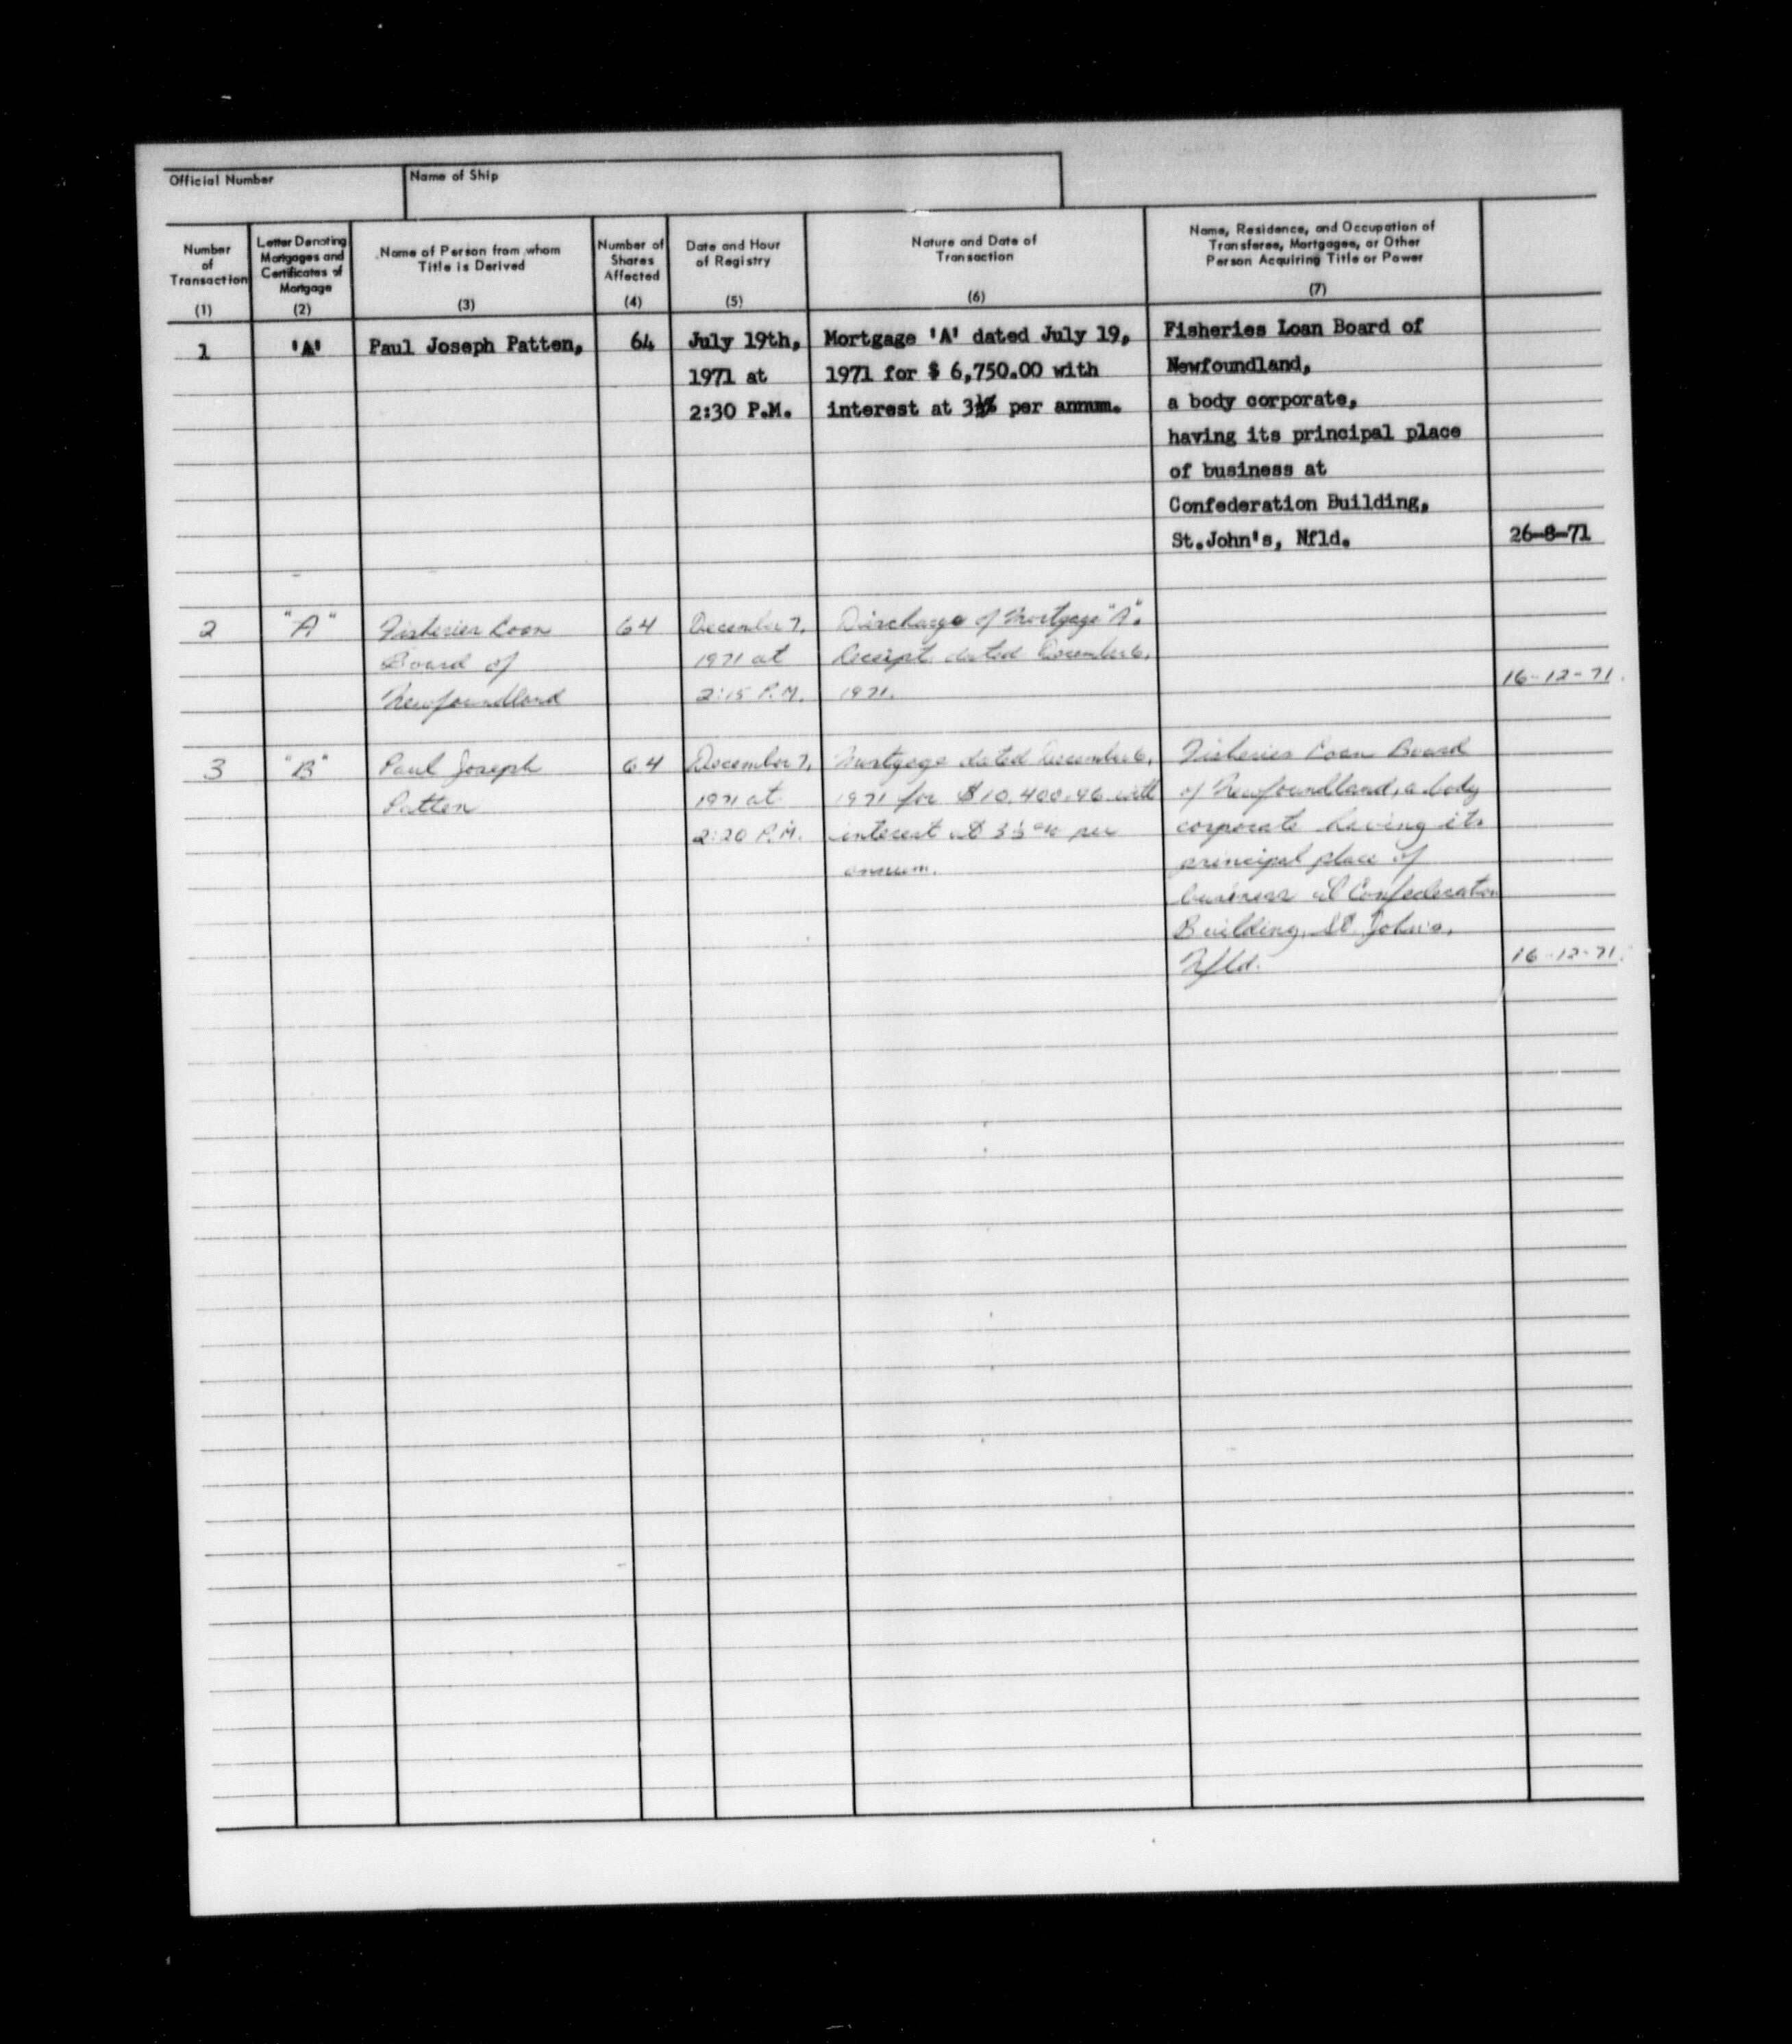 Official Number
Name of Ship
Number of Transaction (1)
Letter Denoting Mortgages and Certificates of Mortgage (2)
Name of Person from whom Title is Derived (3)
Number of Shares Affected (4)
Date and Hour of Registry (5)
Nature and Date of Transaction (6)
Name, Residence, and Occupation of Transferee, Mortgagee, or Other Person Acquiring Title or Power (7)
1 'A' Paul Joseph Patten, 64 July 19th, Mortgage 'A' dated July 19, Fisheries Loan Board of
1971 at 1971 for $ 6,750.00 with Newfoundland,
2:30 P.M. interest at 3½% per annum. a body corporate,
having its principal place
of business at
Confederation Building,
St.John's, Nfld. 26-8-71
2 "A" Fisheries Loan 64 December 7, Discharge of Mortgage "A".
Board of 1971 at Receipt dated December 6,
Newfoundland 2:15 P.M. 1971. 16-12-71.
3 "B" Paul Joseph 64 December 7, Mortgage dated December 6, Fisheries Loan Board
Patten 1971 at 1971 for $10,400.96 with of Newfoundland, a body
2:20 P.M. interest at 3½% per corporate having its
annum. principal place of
business at Confederation
Building, St. John's,
Nfld. 16-12-71.